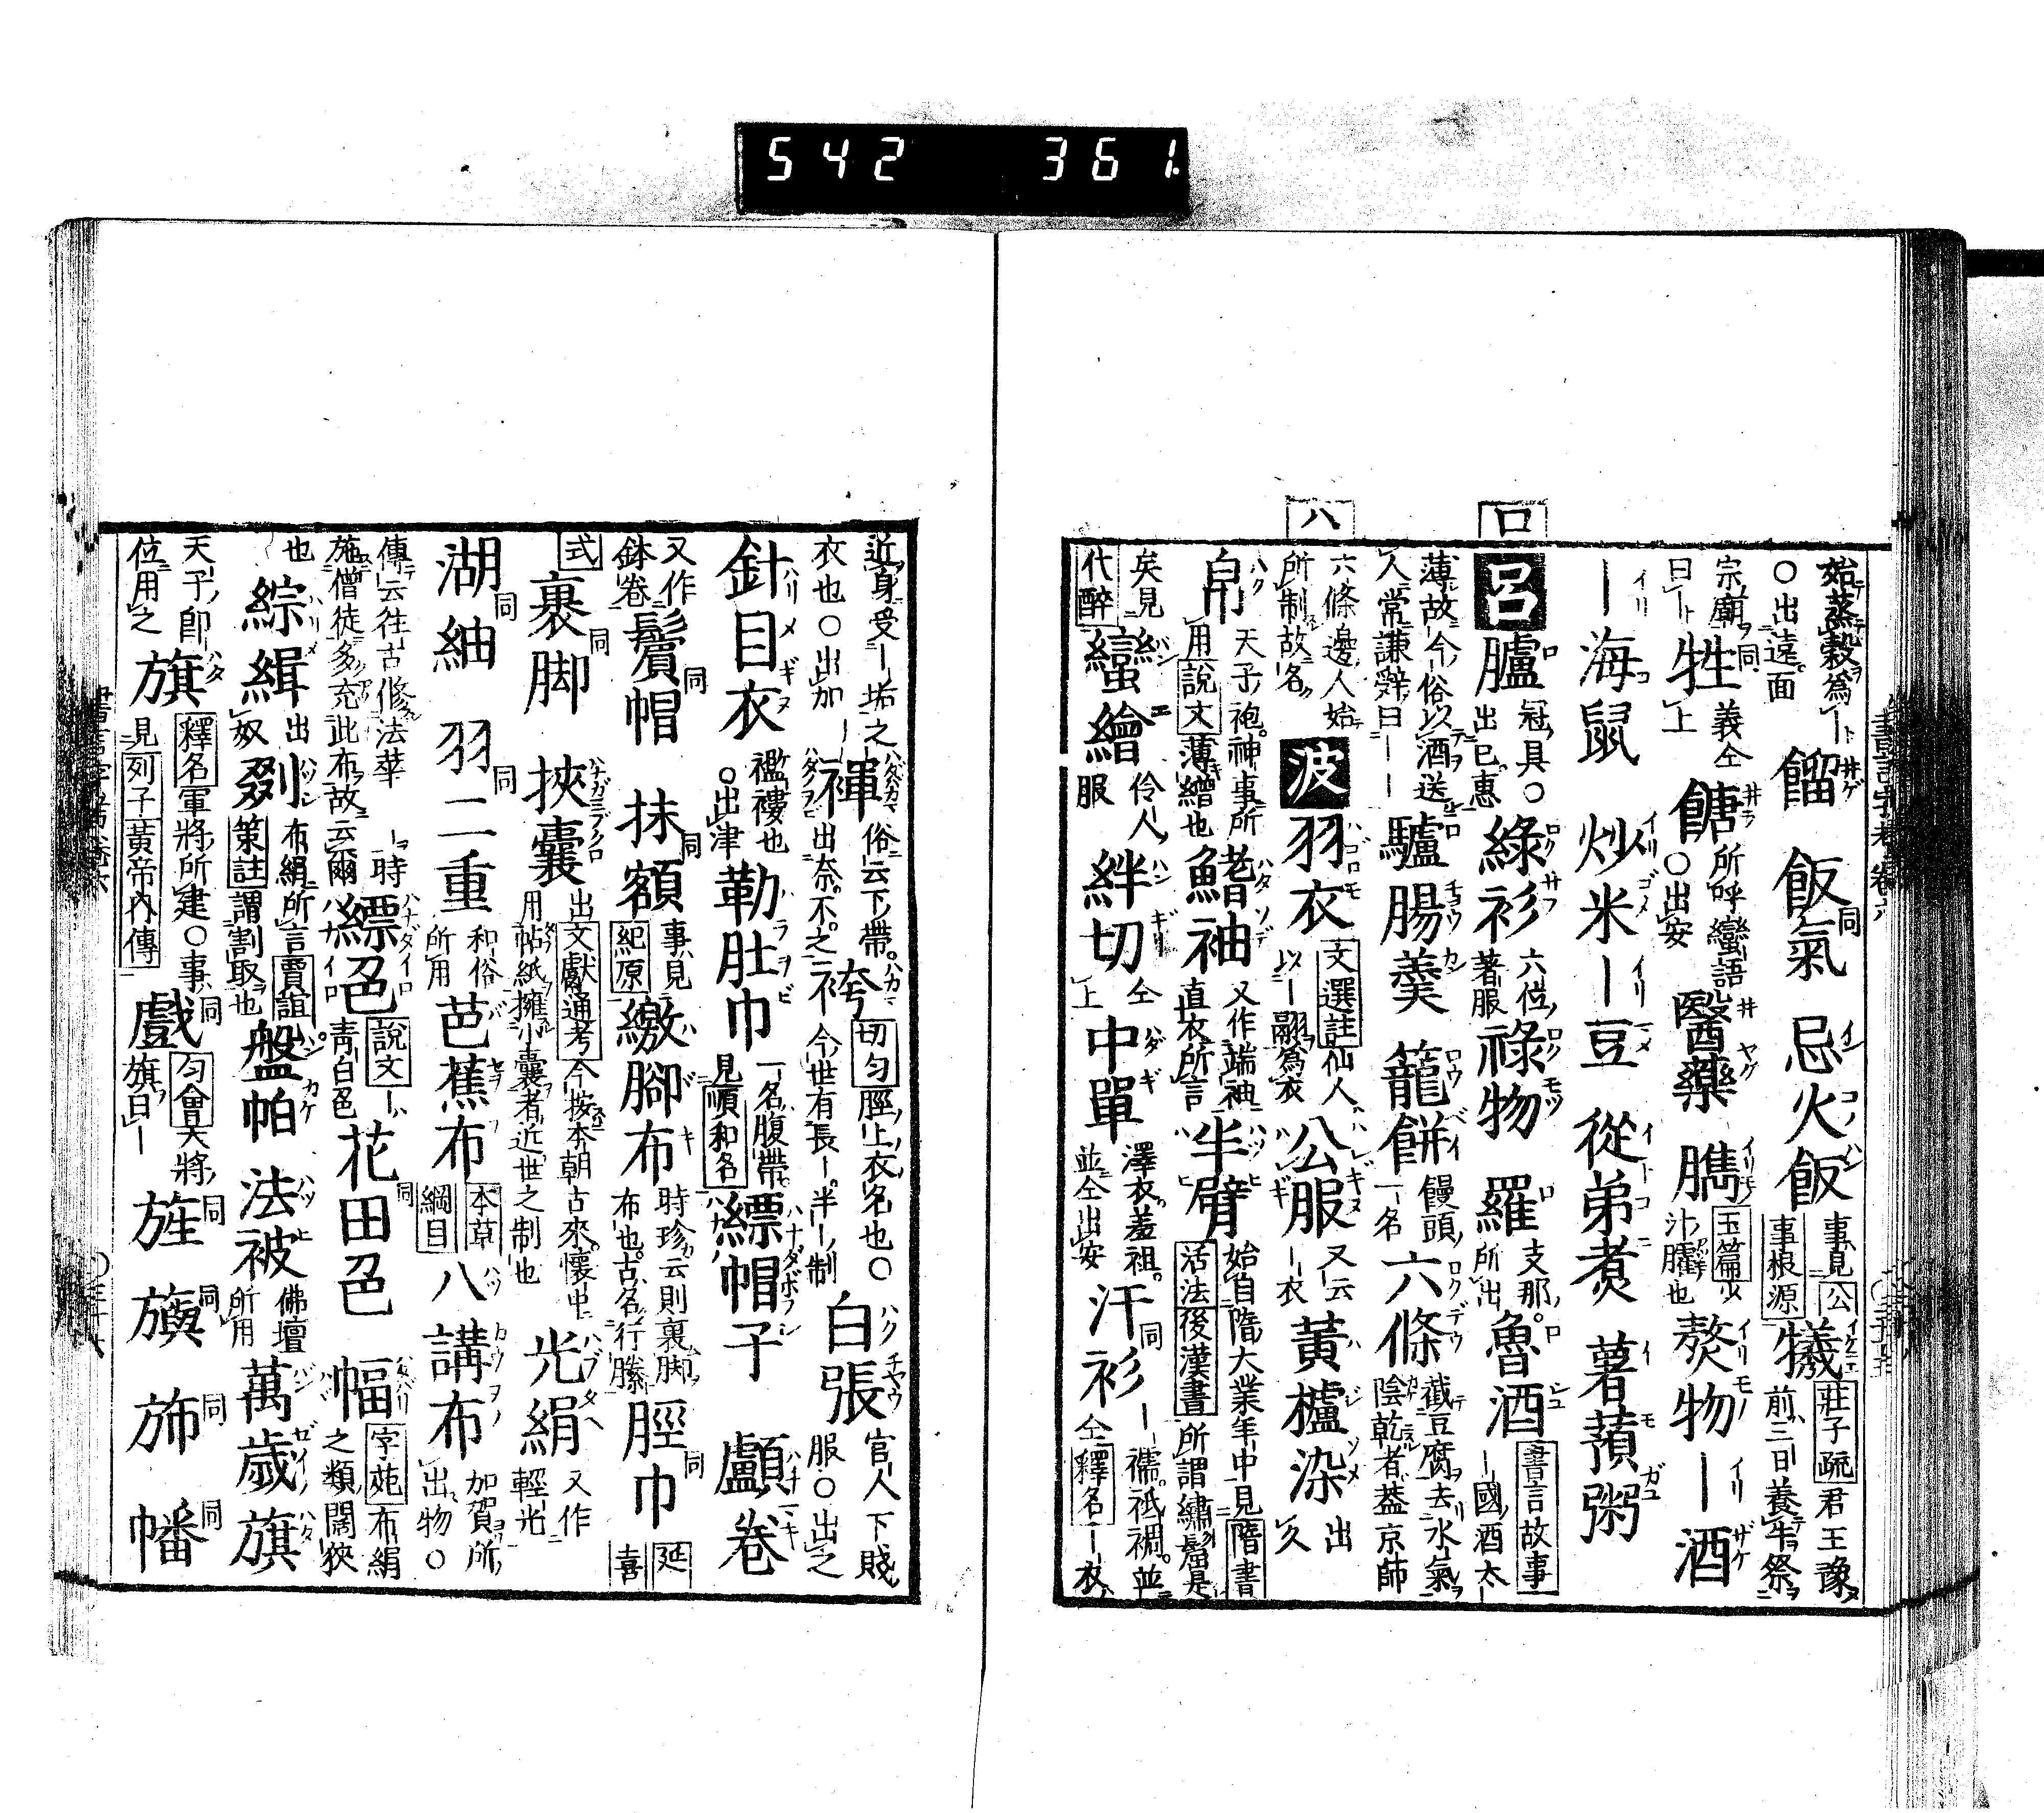 542 361.
ロ
ハ
始蒸穀爲｜
○出遠面
餾 飯氣 忌火飯
事見公
事根源
犧
莊子疏君王豫
前三日養牛祭
宗廟同
曰｜
牲
義仝
上
餹
所呼蠻語
○出安
醫藥 臇
玉篇少
汁臛也
熬物 ｜酒
｜海鼠 炒米 ｜豆 從弟煮 薯蕷粥
呂 臚
冠具○
出已惠
綠衫
六位
著服
祿物 羅
支那
所出
魯酒
書言故事
｜國酒太｜
薄故今俗以酒送
人常謙辭曰｜｜
驢腸羮 籠餅
饅頭
一名
六條
截豆腐去水氣
陰乾者葢京師
六條邊人始
所制故名
波 羽衣
文選註仙人
以｜翮爲衣
公服
又云
｜衣
黃櫨染
出
久
帛
天子袍神事所
用說文薄繒也
鰭袖
又作端袖
直衣所言
半臂
始自隋大業年中見隋書
活法後漢書所謂繡䘿是
矣見
代醉
蠻繪
伶人
服
絆切
仝
上
中單
澤衣羞袒
並仝出安
汗衫
｜襦袛裯並
仝釋名｜衣
近身受｜垢之
衣也○出加
褌
俗云下帶
出奈不之
袴
切匀脛上衣名也○
今世有長｜半｜制
白張
官人下賤
服○出之
針目衣
襤褸也
○出津
勒肚巾
一名腹帶
見順和名
縹帽子 顱卷
又作
鉢卷
鬢帽 抹額
事見
紀原
繳腳布
時珍云則裏脚
布也古名行縢
脛巾
延
喜
式
裹脚 挾嚢
出文獻通考今按本朝古來懷中
用帖紙擁小囊者近世之制也
光絹
又作
輕光
湖紬 羽二重
和俗
所用
芭蕉布
本草
綱目
八講布
加賀所
出物○
傳云往古修法華｜時
施僧徒多充此布故云爾
縹色
說文｜
青白色
花田色 幅
字苑布絹
之類闊狹
也
綜緝
出
奴
剟
布絹所言賈誼
策註謂割取也
盤帕 法被
佛壇
所用
萬歲旗
天子卽｜
位用之
旗
釋名軍將所建○事
見列子黃帝內傳
戲
匀會大將
旗曰｜
旌 旟 斾 幡